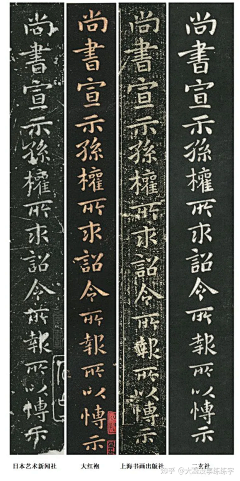 尚書宣示孫權所求詔令所報所以博示
尚書宣示孫權所求詔令所報所以博示
尚書宣示孫權所求詔令所報所以博示
尚書宣示孫權所求詔令所報所以博示
日本艺术新闻社
大红袍
上海书画出版社
二玄社